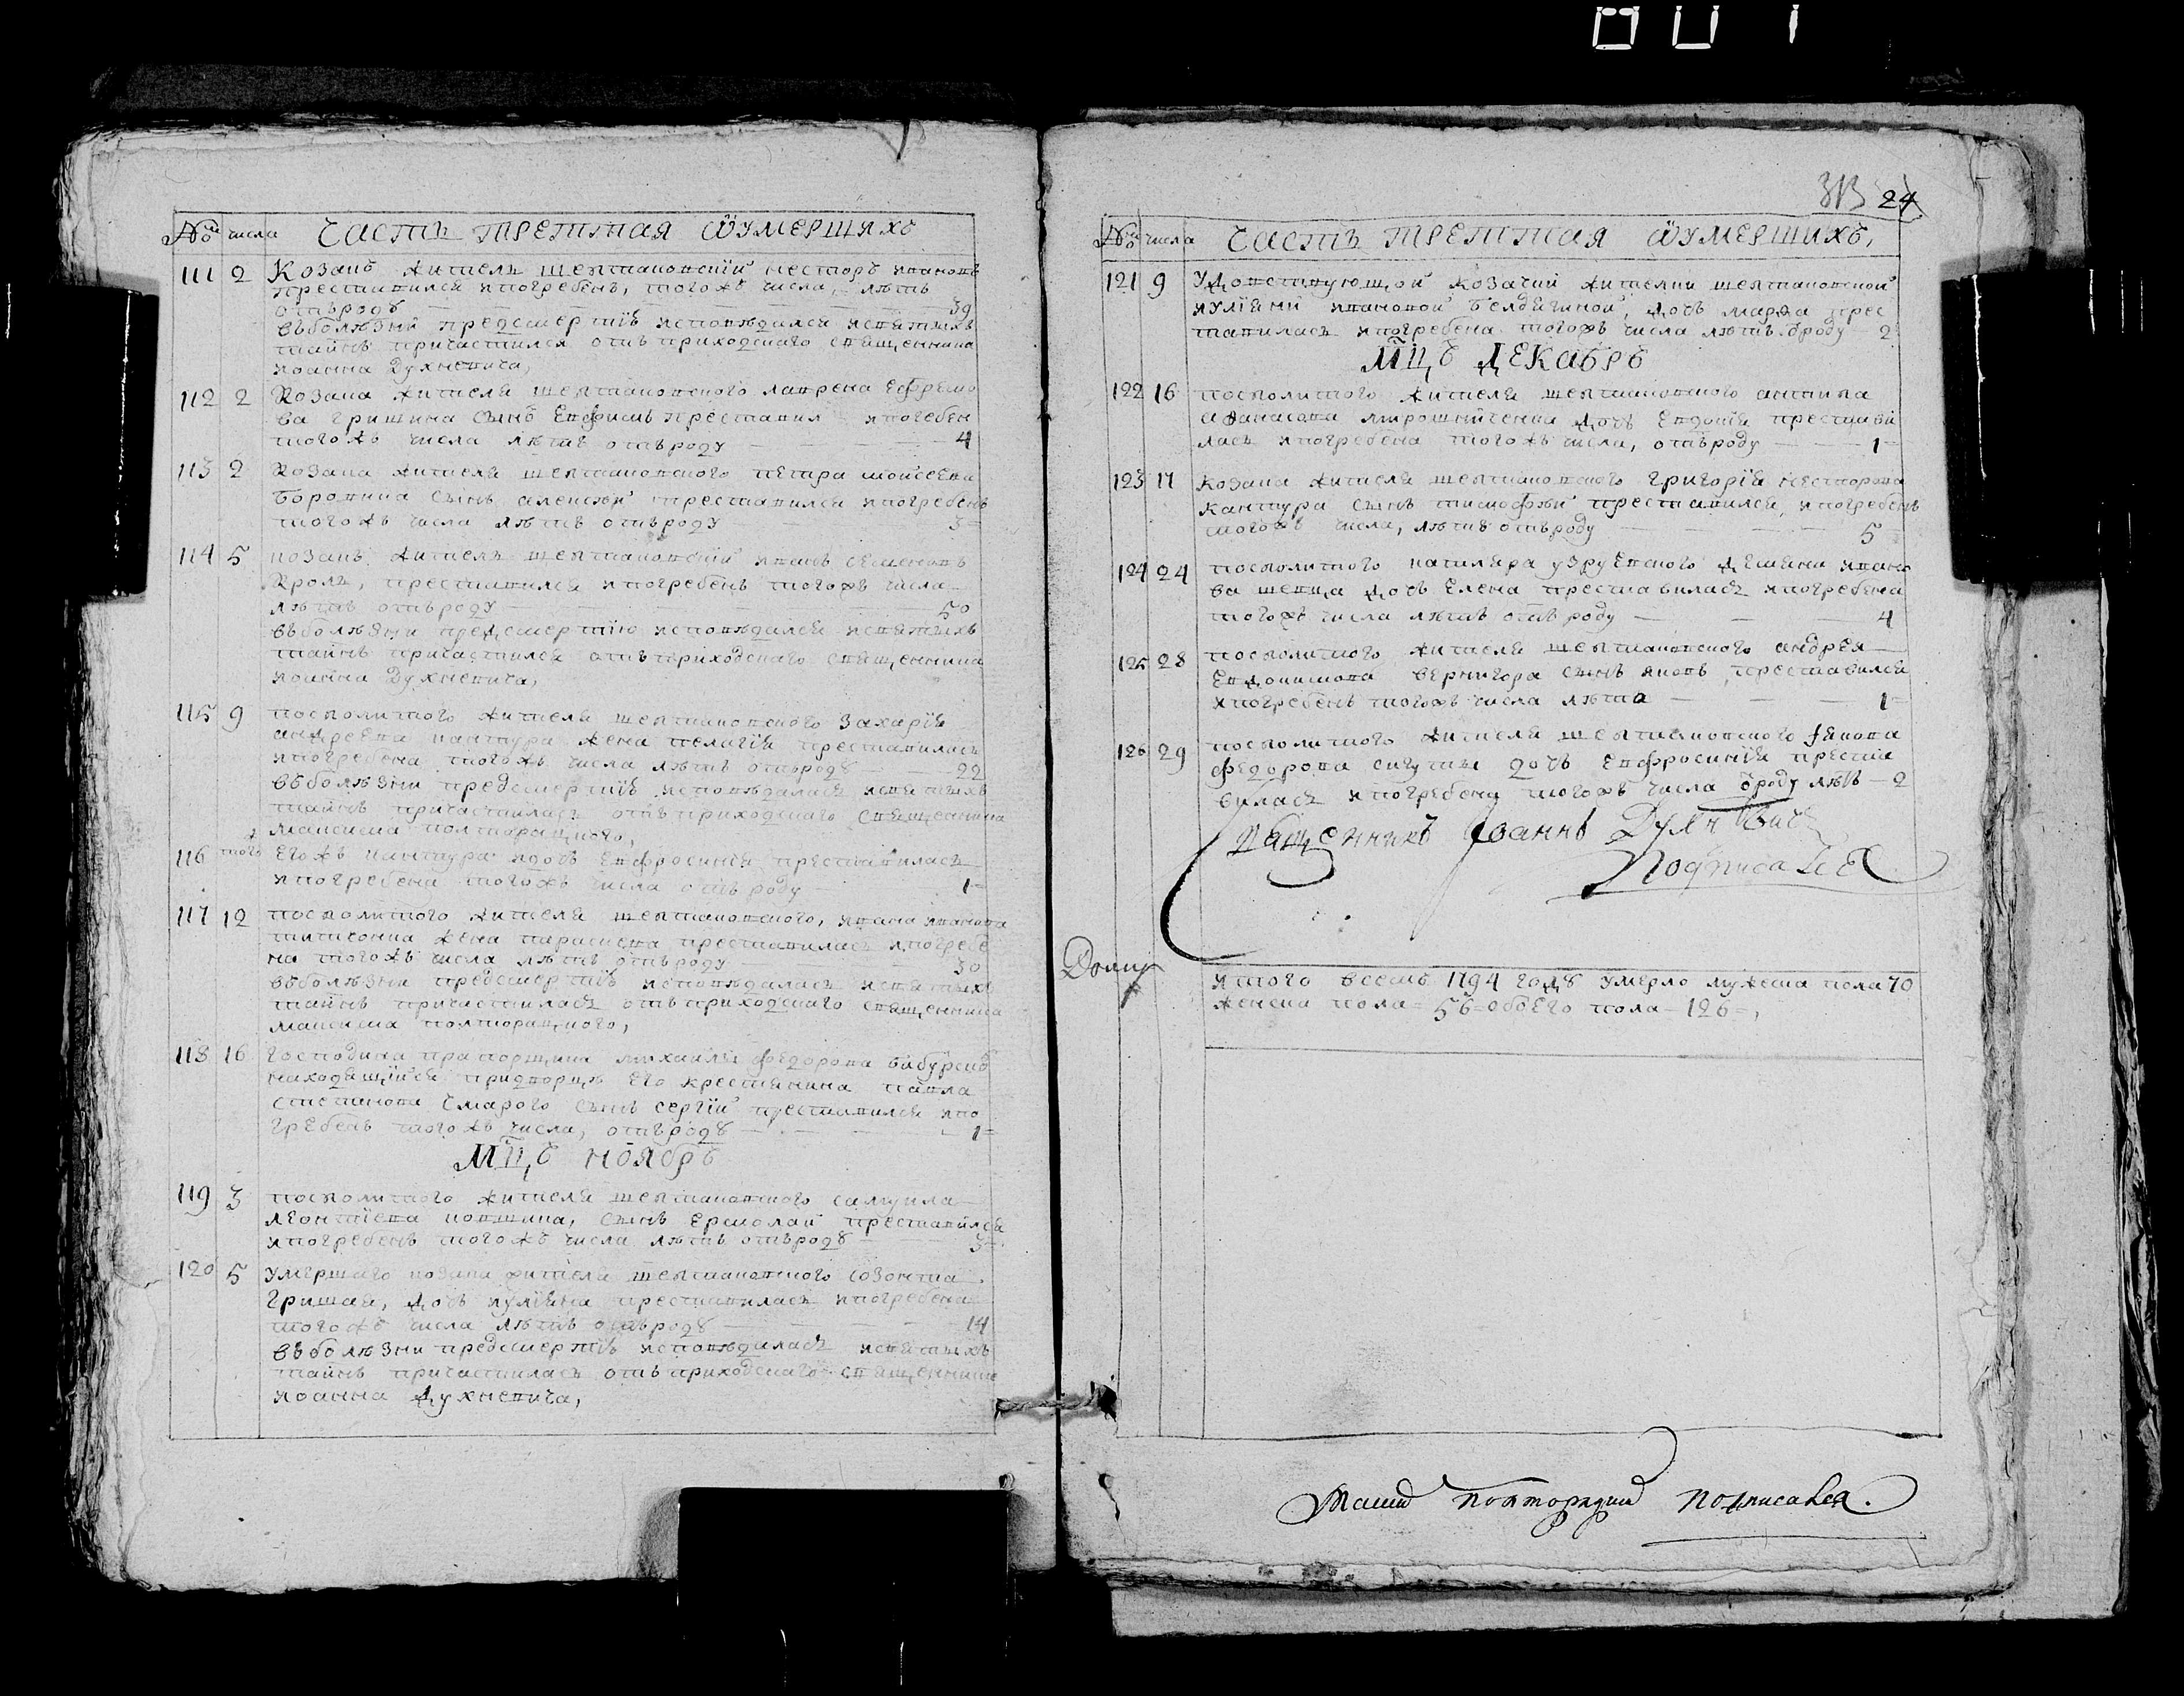 № числа Часть треттая ѿ умершихъ
111 2 Козакъ житель шептаковскій несторъ ивановъ
преставился ипогребенъ, тогожъ числа, лѣтъ
отъроду 39
въболѣзни предсмертіѣ исповѣдался исвятыхъ
таинъ причастился отъ приходскаго священника
иоанна Духневича,
112 2 Козака жителя шептаковского лаврена Ефремо
ва гришина сынъ Евфимъ преставил ипогебен
тогожъ числа лѣтъ отъроду 4
113 2 Козака жителя шептаковского петра мойсеева
боровика сынъ алексѣй преставился ипогребенъ
тогожъ числа лѣтъ отъроду 3
114 5 козакъ житель шептаковскій иванъ семеновъ
кроль, преставился ипогребенъ тогожъ числа
лѣтъ отъроду 50
въболѣзни предсмертію исповѣдался исвятыхъ
таинъ причастился отъ приходскаго священника
иоанна Духневича,
115 9 посполитого жителя шептаковского захарія
андреева кантура жена пелагія преставилась
ипогребена тогожъ числа лѣтъ отъроду 22
въболѣзни предсмертіѣ исповѣдалась исвятыхъ
таинъ причастилась отъ приходскаго священника
максима полторацкого,
116 того Егожъ кантура дочь Евфросинія преставилась
ипогребена тогожъ числа отъ роду 1
117 12 посполитого жителя шептаковского, ивана иванова
титченка жена параскева преставилась ипогребе
на тогожъ числа лѣтъ отъроду 30
въболѣзни предсмертіѣ исповѣдалась исвятыхъ
таинъ причастилась отъ приходскаго священника
максима полторацкого,
118 16 господина прапорщика михаила федорова
находящійся придворцѣ Его крестянина павла
степанова сынъ сергій преставился ипо
гребенъ тогожъ числа, отъроду 1
Мцъ ноябрь
119 3 посполитого жителя шептаковского самуила
леонтіева ковшика, сынъ ермолай преставился
ипогребенъ тогожъ числа лѣтъ отъроду 3
120 5 умершаго козака жителя шептаковского созонта
гришая, дочь иуліяна преставилась ипогребена
тогожъ числа лѣтъ отъроду 14
въболѣзни предсмертіѣ исповѣдалась исвятыхъ
таинъ причастилась отъ приходскаго священника
иоанна Духневича,
24
№ числа Часть треттая ѿ умершихъ,
121 9 удовствующой козачки жителки шептаковской
иуліяни ивановой дочь марфа прес
тавилась ипогребена тогожъ числа лѣтъ ѿроду 2
Мцъ Декабрь
122 16 посполитого жителя шептаковского антипа
афанасова мирошниченка дочь Евдокія престави
лась ипогребена тогожъ числа, отъроду 1
123 17 козака жителя шептаковского григорія несторова
кантура сынъ тимофѣй преставился, ипогребенъ
тогожъ числа, лѣтъ отъроду 5
124 24 посполитого демяна ивано
ва шевца дочь Елена преставилась ипогребена
тогожъ числа лѣтъ отъ роду 4
125 28 посполитого жителя шептаковского андрея
Евдокимова вернигора сынъ яковъ преставился
ипогребенъ тогожъ числа лѣта 1
126 29 посполитого жителя шептаковского якова
федорова сикуты дочь Евфросинія преста
вилась ипогребена тогожъ числа ѿроду лѣтъ 2
священникъ Иоаннъ Духневичъ
подписался
итого всемъ 1794 году умерло мужеска пола 70
женска пола 56 обоего пола 126,
Максимъ полторацкий подписался.